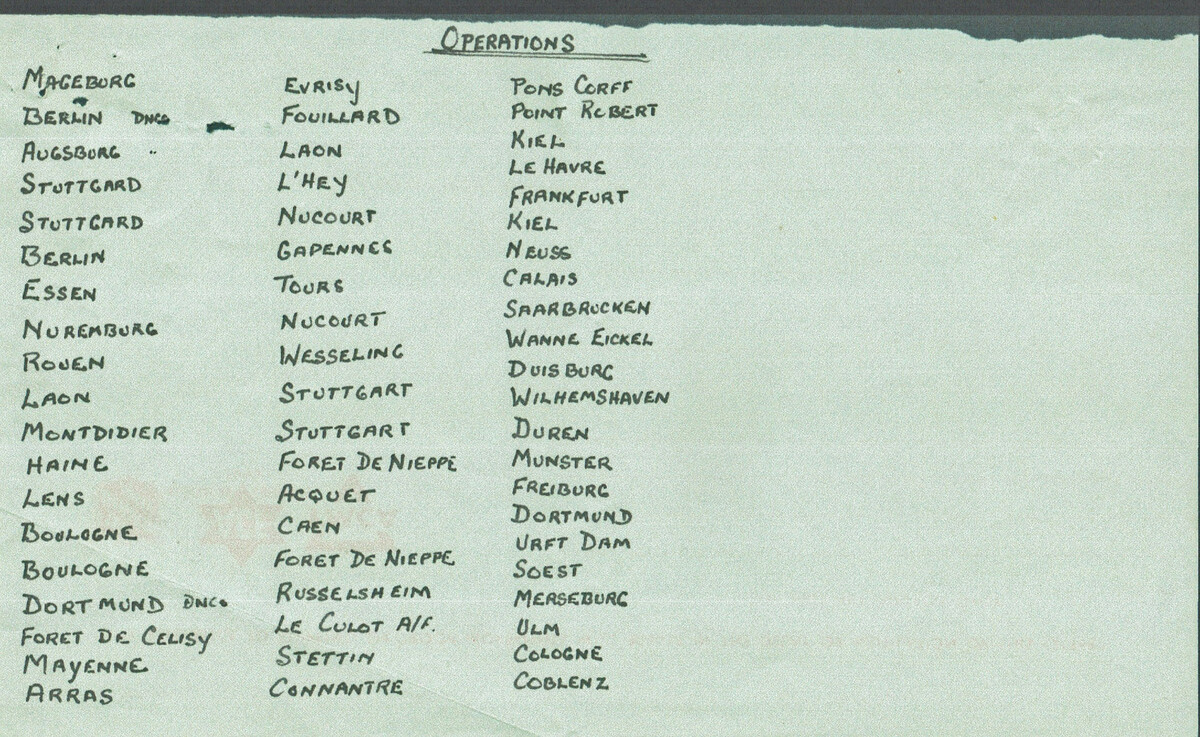 OPERATIONS
MAGEBURG
BERLIN DNCO
AUGSBURG
STUTTGARD
STUTTGARD
BERLIN
ESSEN
NUREMBURG
ROUEN
LAON
MONTDIDIER
HAINE
LENS
BOULOGNE
BOULOGNE
DORTMUND DNCO
FORET DE CELISY
MAYENNE
ARRAS
EVRISY
FOUILLARD
LAON
L'HEY
NUCOURT
GAPENNES
TOURS
NUCOURT
WESSELING
STUTTGART
STUTTGART
FORET DE NIEPPE
ACQUET
CAEN
FORET DE NIEPPE
RUSSELSHEIM
LE CULOT A/F.
STETTIN
CONNANTRE
PONS CORFF
POINT ROBERT
KIEL
LE HAVRE
FRANKFURT
KIEL
NEUSS
CALAIS
SAARBRUCKEN
WANNE EICKEL
DUISBURG
WILHEMSHAVEN
DUREN
MUNSTER
FREIBURG
DORTMUND
URFT DAM
SOEST
MERSEBURG
ULM
COLOGNE
COBLENZ